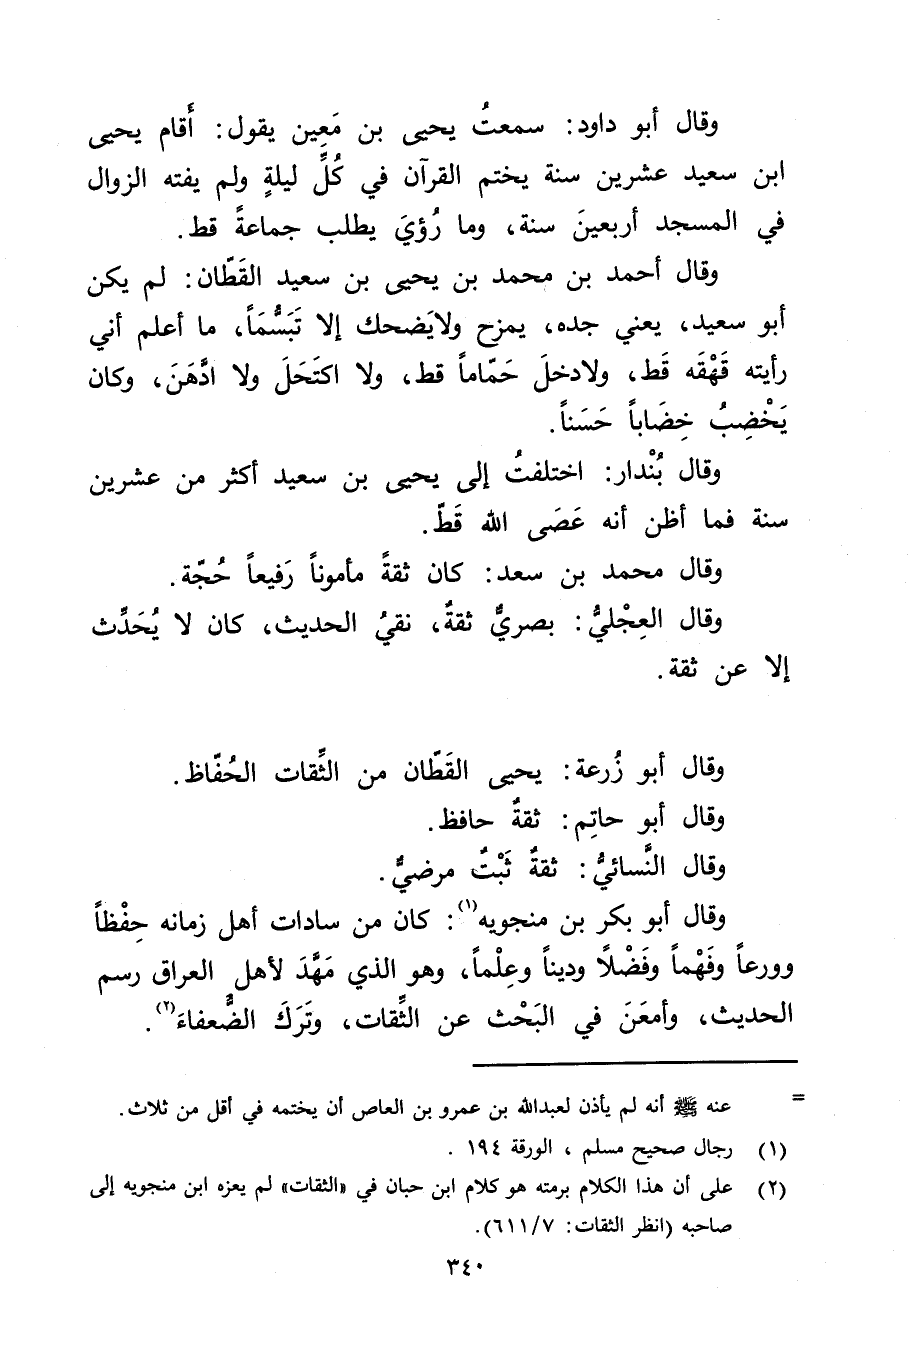 وقال أبو داود: سمعتُ يحيى بن مَعِين يقول: أَقام يحيى
ابن سعيد عشرين سنة يختم القرآن في كُلِّ ليلةٍ ولم يفته الزوال
في المسجد أربعينَ سنة، وما رُؤيَ يطلب جماعةً قط.
وقال أحمد بن محمد بن يحيى بن سعيد القَطّان: لم يكن
أبو سعيد، يعني جده، يمزح ولايَضحك إلا تَبَسُّمَاً، ما أعلم أني
رأيته قَهْقَه قَط، ولادخلَ حَمّاماً قط، ولا اكتَحَلَ ولا ادَّهَنَ، وكان
يَخْضِبُ خِضَاباً حَسَناً.
وقال بُنْدار: اختلفتُ إلى يحيى بن سعيد أكثر من عشرين
سنة فما أظن أنه عَصَى الله قَطّ.
وقال محمد بن سعد: كان ثقةً مأموناً رَفيعاً حُجّة.
وقال العِجْليُّ: بصريٌّ ثقةٌ، نقيُ الحديث، كان لا يُحَدِّث
إلا عن ثقة.
وقال أبو زُرعة: يحيى القَطّان من الثِّقات الحُفّاظ.
وقال أبو حاتِم: ثقةٌ حافظ.
وقال النَّسائيُّ: ثقةٌ ثَبْتٌ مرضيٌّ.
وقال أبو بكر بن منجويه(١): كان من سادات أهل زمانه حِفْظاً
وورعاً وفَهْماً وفَضْلًا وديناً وعِلْماً، وهو الذي مَهَّدَ لأهل العراق رسم
الحديث، وأمعَنَ في البَحْث عن الثِّقات، وتَرَكَ الضُّعفاءَ(٢).
= عنه ﷺ أنه لم يأذن لعبدالله بن عمرو بن العاص أن يختمه في أقل من ثلاث.
(١) رجال صحيح مسلم ، الورقة ١٩٤ .
(٢) على أن هذا الكلام برمته هو كلام ابن حبان في «الثقات» لم يعزه ابن منجويه إلى
صاحبه (انظر الثقات: ٦١١/٧).
٣٤٠